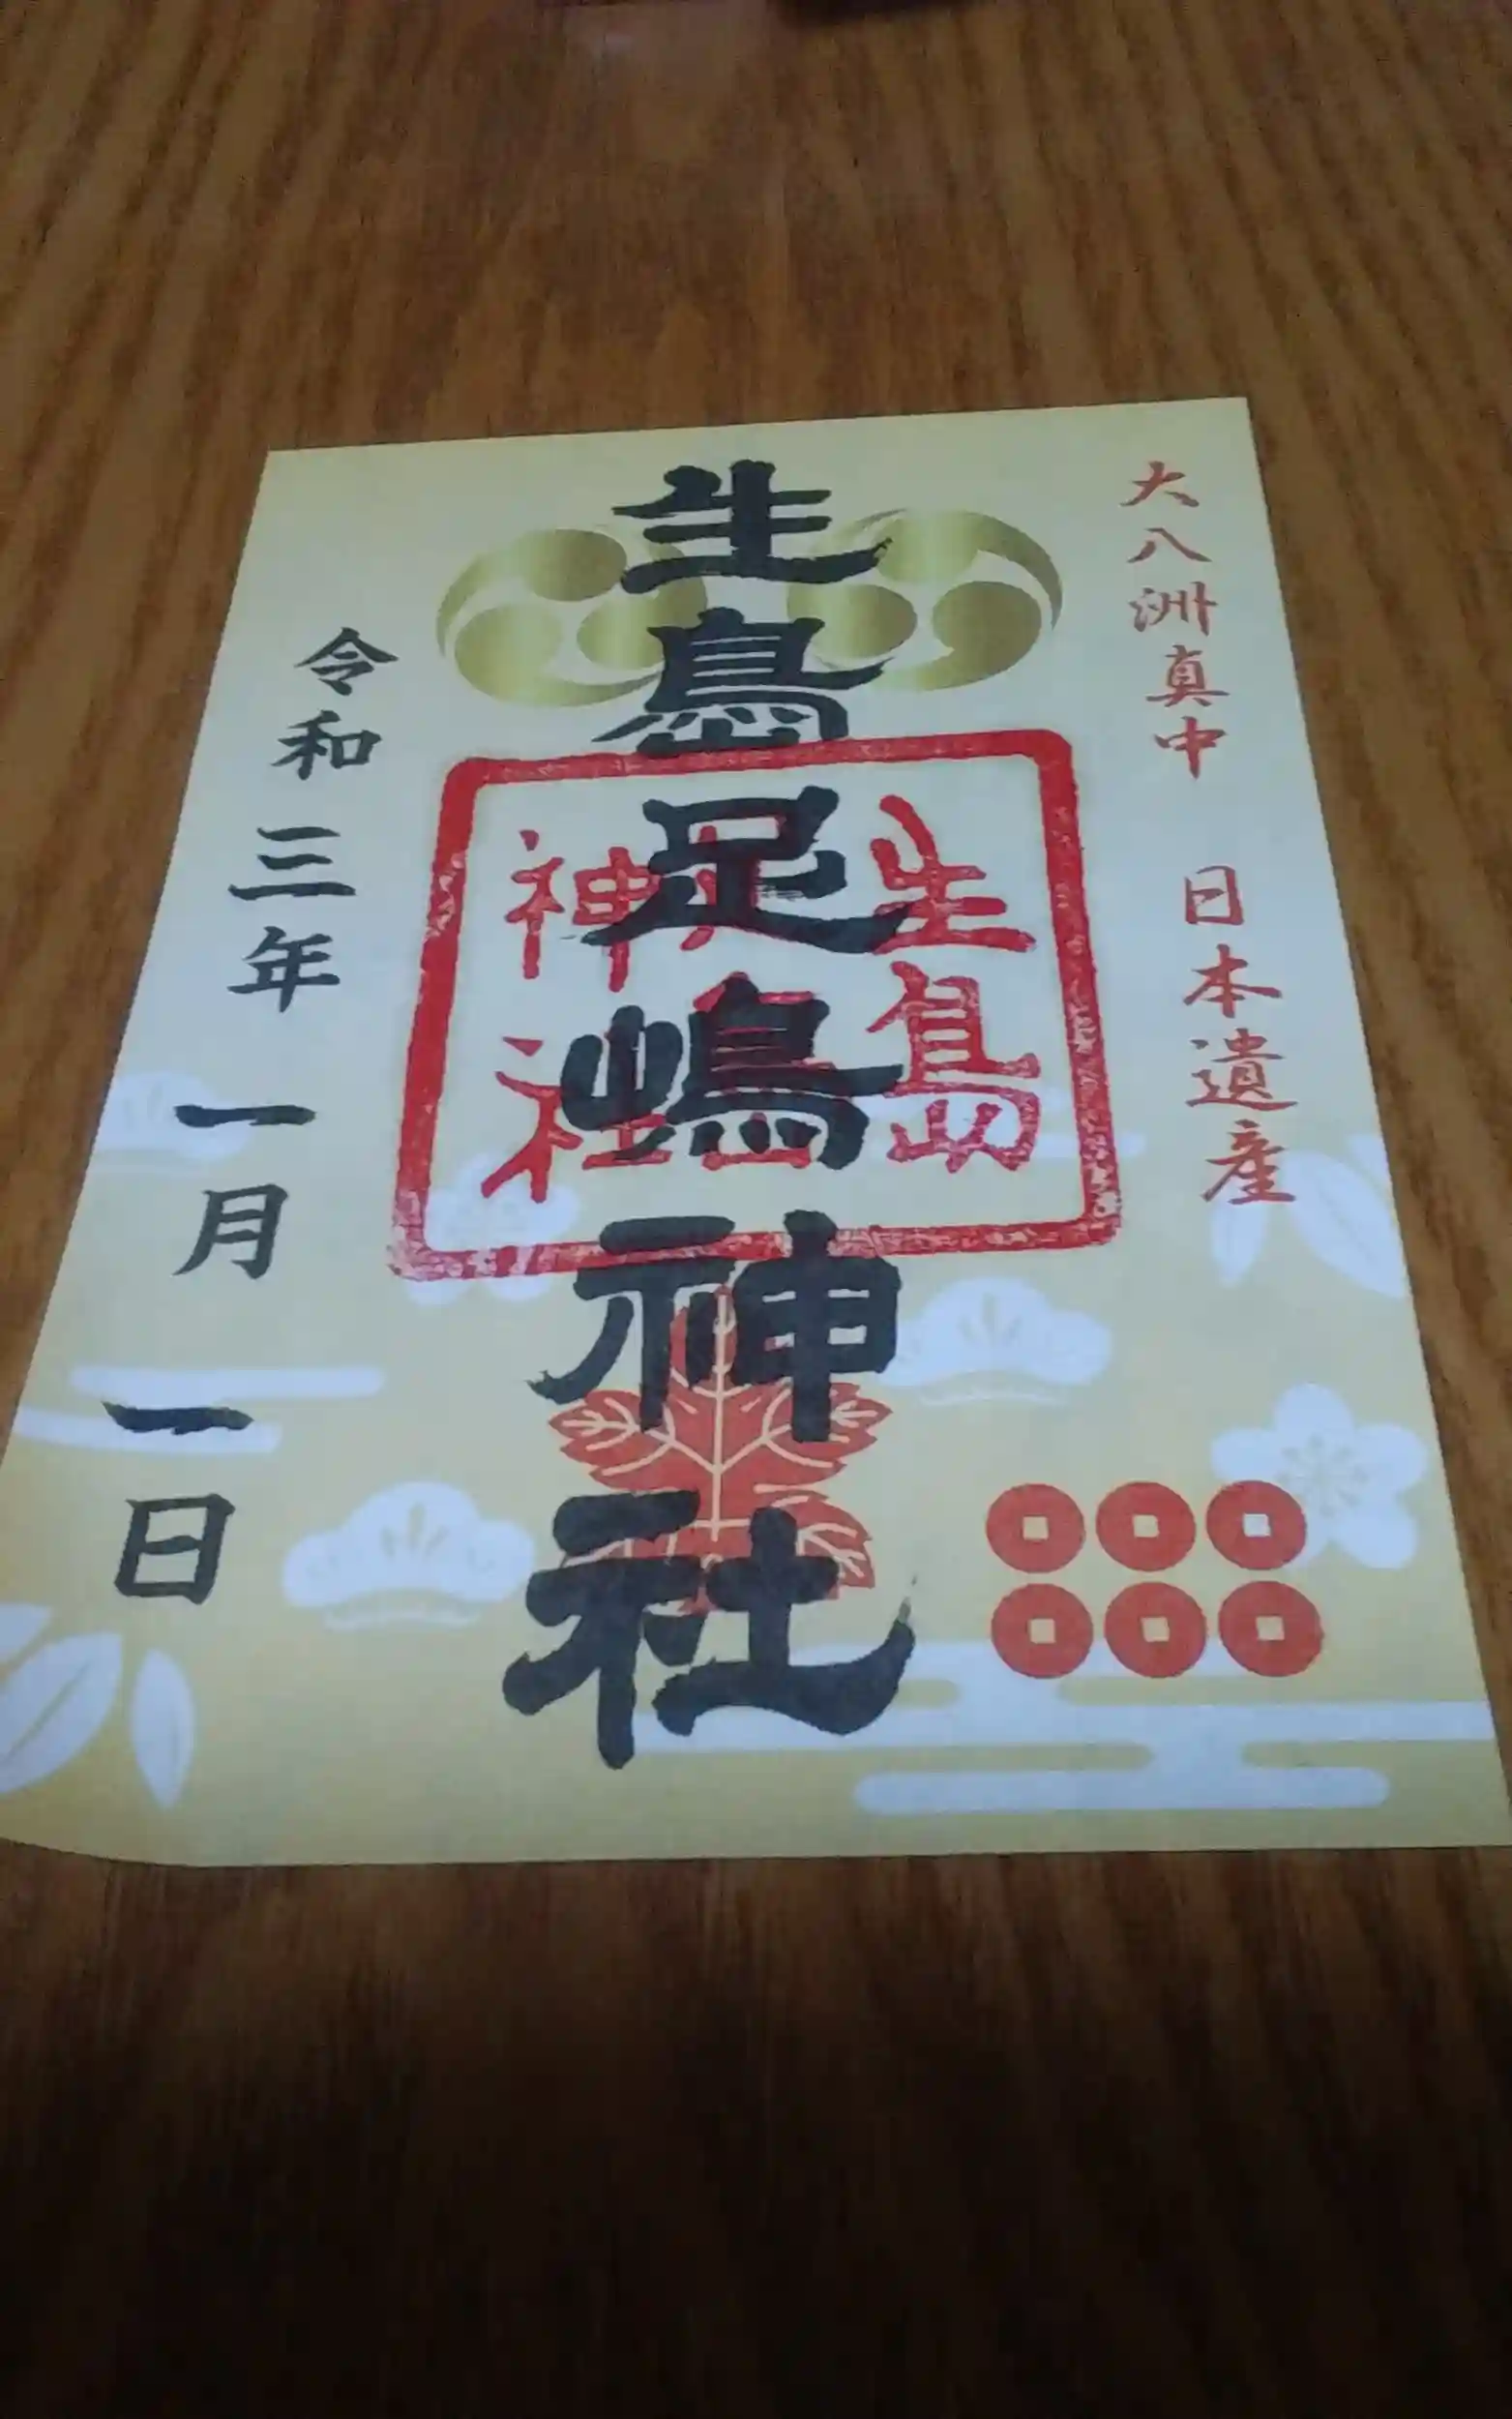 大八洲真中 日本遺産
生島足嶋神社
生島
神社
令和三年 一月 一日